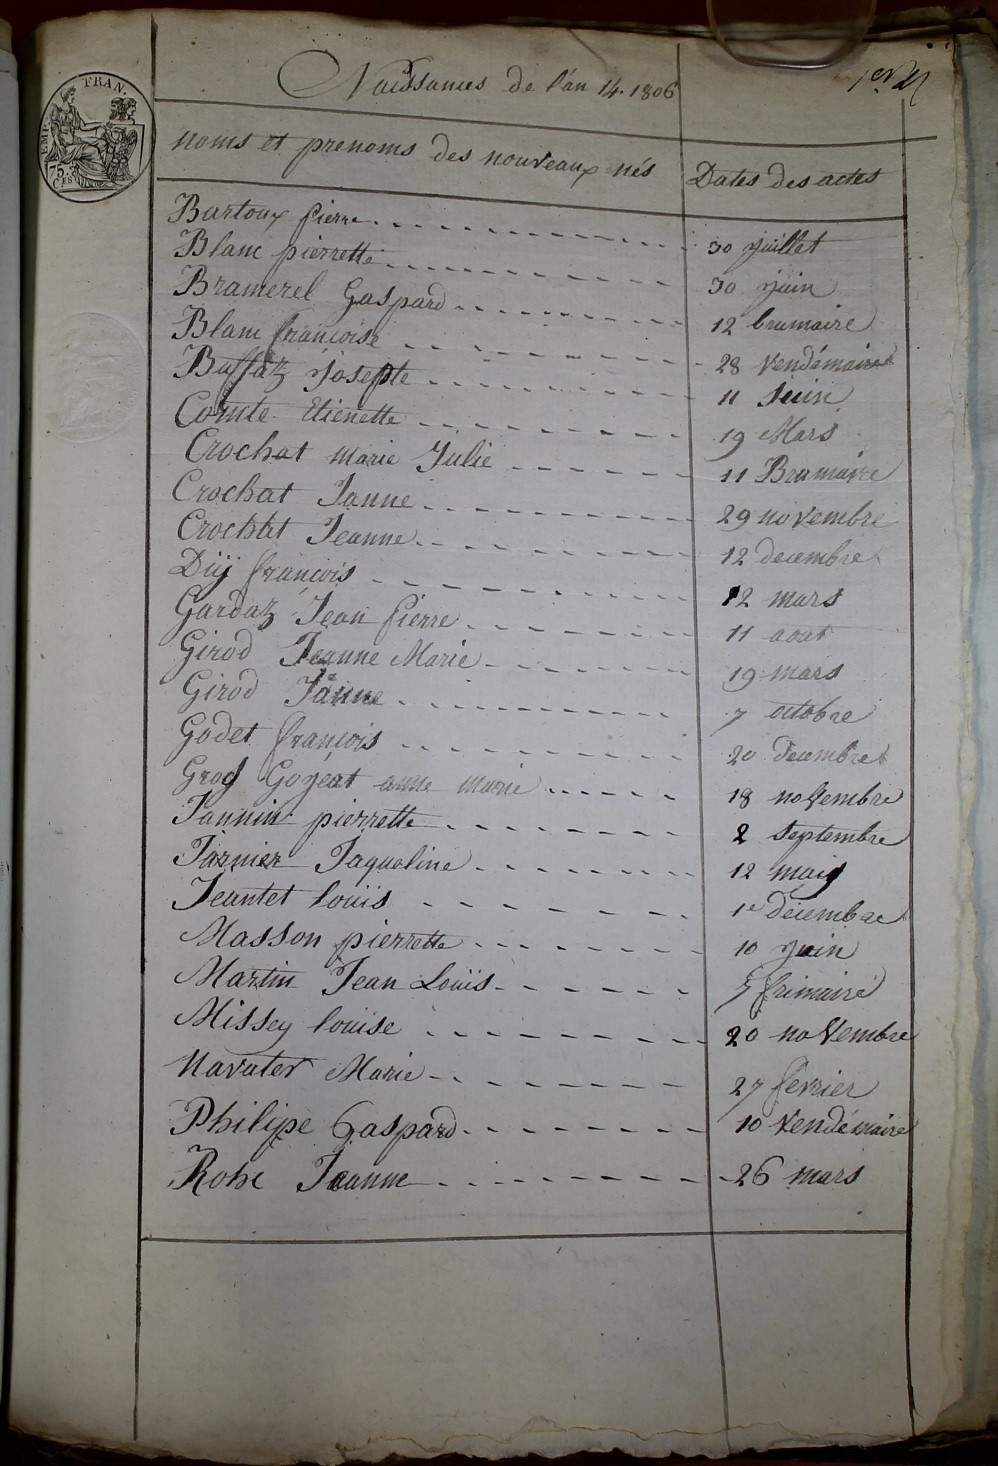 Naissances de l'an 14. 1806
EMP. FRAN.
75.
noms et prenoms des nouveaux nés Dates des actes
Bartoux pierre 30 juillet
Blanc pierrette 30 juin
Bramerel Gaspard 12 brumaire
Blanc françoise 28 vendémaire
Buffaz Josepte 11 Juin
Comte Etienette 19 Mars
Crochat marie Julie 11 Brumaire
Crochat Janne 29 novembre
Crochat Jeanne 12 decembre
Düj françois 12 mars
Gardaz Jean pierre 11 aout
Girod Jeanne Marie 19 mars
Girod Janne 7 octobre
Godet françois 20 decembre
Gros Goyeat anne marie 18 novembre
Jannin pierrette 2 septembre
Jarnier Jaqueline 12 mais
Jeantet louis 1e décembre
Masson pierrette 10 juin
Martin Jean Louis 5 frimaire
Missey louise 20 novembre
Navatier Marie 27 fevrier
Philipe Gaspard 10 vendémaire
Robe Jeanne 26 mars